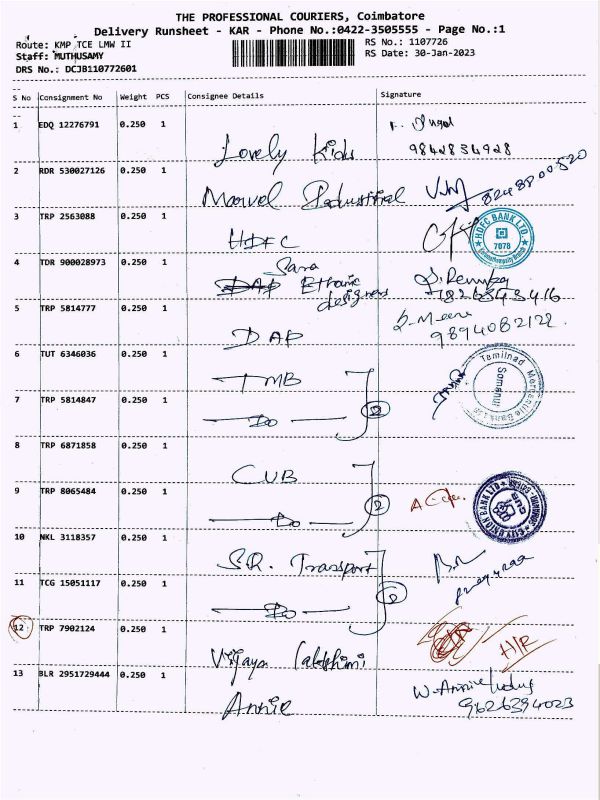 THE PROFESSIONAL COURIERS, Coimbatore
Delivery Runsheet - KAR - Phone No.:0422-3505555 - Page No.:1
Route: KMP TCE LMW II RS No.: 1107726
Staff: MUTHUSAMY RS Date: 30-Jan-2023
DRS No.: DCJB110772601
S No Consignment No Weight PCS Consignee Details Signature
1 EDQ 12276791 0.250 1 Lovely Kids
9842834928
2 RDR 530027126 0.250 1 Marvel Industrial 8248800520
3 TRP 2563088 0.250 1 HDFC HDFC BANK LTD. 7078
4 TDR 900028973 0.250 1 Sara
DAP Ethnic designers
5 TRP 5814777 0.250 1 DAP
9894082128
6 TUT 6346036 0.250 1 TMB Tamilnad Mercantile Bank Ltd Somanur
7 TRP 5814847 0.250 1 Do
8 TRP 6871858 0.250 1 CUB
9 TRP 8065484 0.250 1 Do 2 CITY UNION BANK LTD CUB
10 NKL 3118357 0.250 1 S.R. Transport
11 TCG 15051117 0.250 1 Do
12 TRP 7902124 0.250 1 Vijaya Lakshimi H/R
13 BLR 2951729444 0.250 1 Annie W. Annie
9626394023